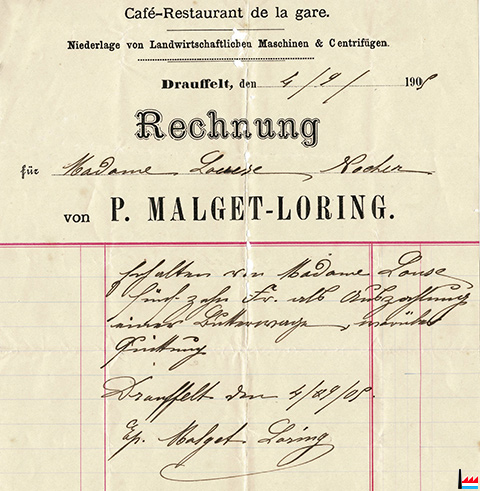 Café-Restaurant de la gare.
Niederlage von Landwirtschaftlichen Maschinen & Centrifügen.
Drauffelt, den 4/9/ 1905
Rechnung
für Madame Louise Nocher
von P. MALGET-LORING.
Erhalten von Madame Louse
fünf zehn Fr. als Aubzahlung
einer Butterwage, worüber
Quittung
Drauffelt den 4/29/05.
Ep. Malget Loring